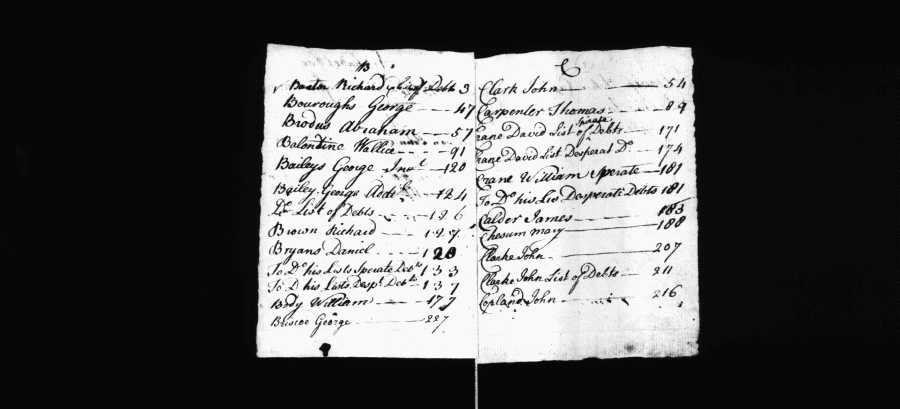 B
Baxter Richard List of Debts 3
Bouroughs George 47
Brodus Abraham 57
Balentine Wallice 91
Baileys George Inv.t 120
Bailey George Addi.l 124
D.o List of Debts 126
Brown Richard 127
Bryans Daniel 128
To D.o his Lists Sperate Deb.ts 133
To D his Lists Desp.t Deb.ts 137
Body William 177
Briscoe George 227
C
Clark John 54
Carpenter Thomas 89
Crane David List of Sperate Debts 171
Crane David List Desperat D.o 174
Crane William Sperate 181
To D.o his Lis Desperate Debts 181
Calder James 183
Chesum Mary 188
Clarke John 207
Clarke John List of Debts 211
Copland John 216